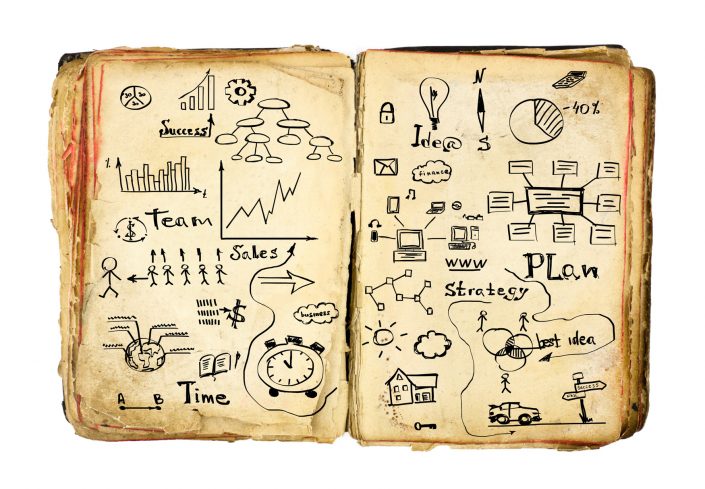 Success
%
t
$
Team
Sales
$
business
A B
Time
N
Ide@
S
-40%
finance
www
PLan
Strategy
best idea
SUCCESS